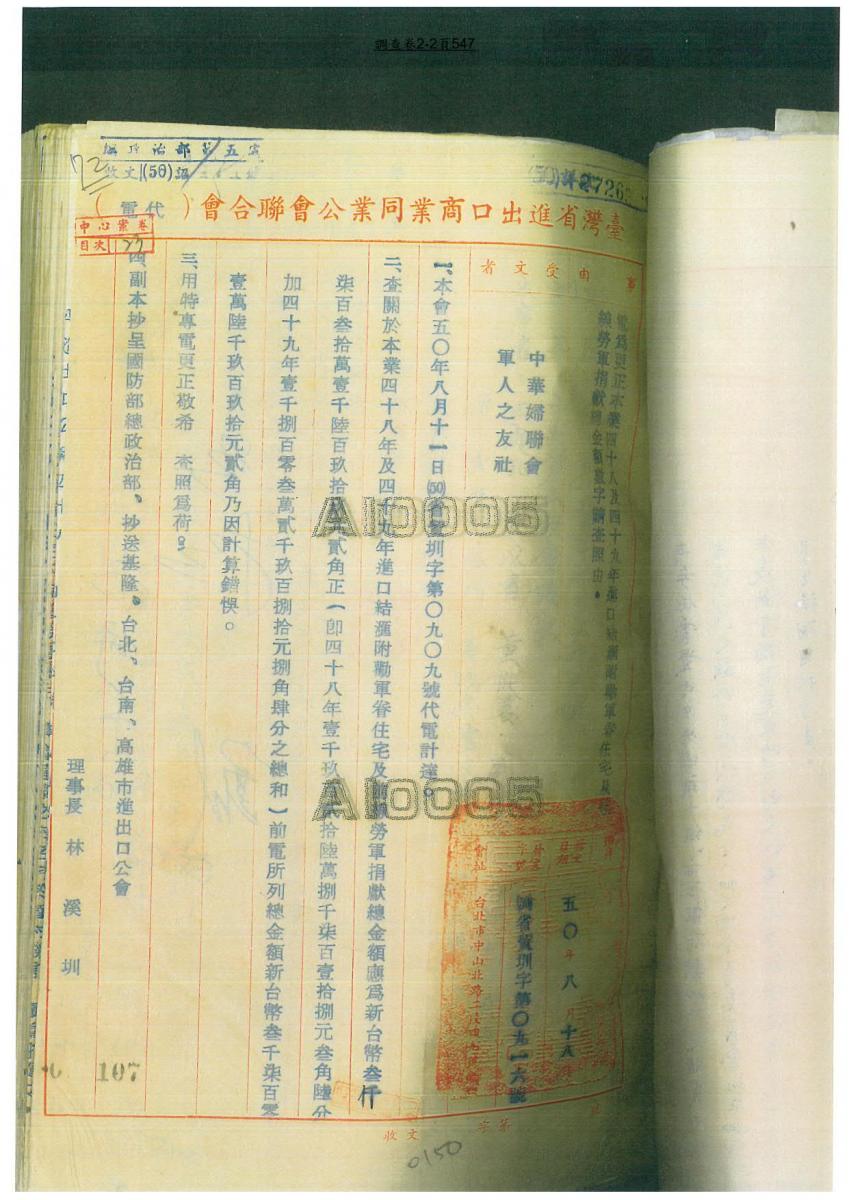 調查卷2-2頁547
總政治部第五室
收文(50)
72
7265
臺灣省進出口商業同業公會聯合會(代電)
中心案卷
目次 27
事由
受文者
電為更正本業四十八及四十九年進口結匯附勸軍眷住宅及
線勞軍捐獻總金額數字請查照由。
中華婦聯會
軍人之友社
五〇年八月十八
省貿圳字第〇九一六號
會址
台北市中山北路二段
一、本會五〇年八月十一日(50)省貿圳字第〇九〇九號代電計達。
二、查關於本業四十八年及四十九年進口結滙附勸軍眷住宅及前線勞軍捐獻總金額應為新台幣叁仟
柒百叁拾萬壹千陸百玖拾 貳角正(卽四十八年壹千玖百貳拾陸萬捌千柒百壹拾捌元叁角陸分
加四十九年壹千捌百零叁萬貳千玖百捌拾元捌角肆分之總和)前電所列總金額新台幣叁千柒百零
壹萬陸千玖百玖拾元貳角乃因計算錯悞。
三、用特專電更正敬希 查照爲荷。
四、副本抄呈國防部總政治部、抄送基隆、台北、台南、高雄市進出口公會
理事長 林溪圳
107
收文 字 第
0150
AI0005
AI0005